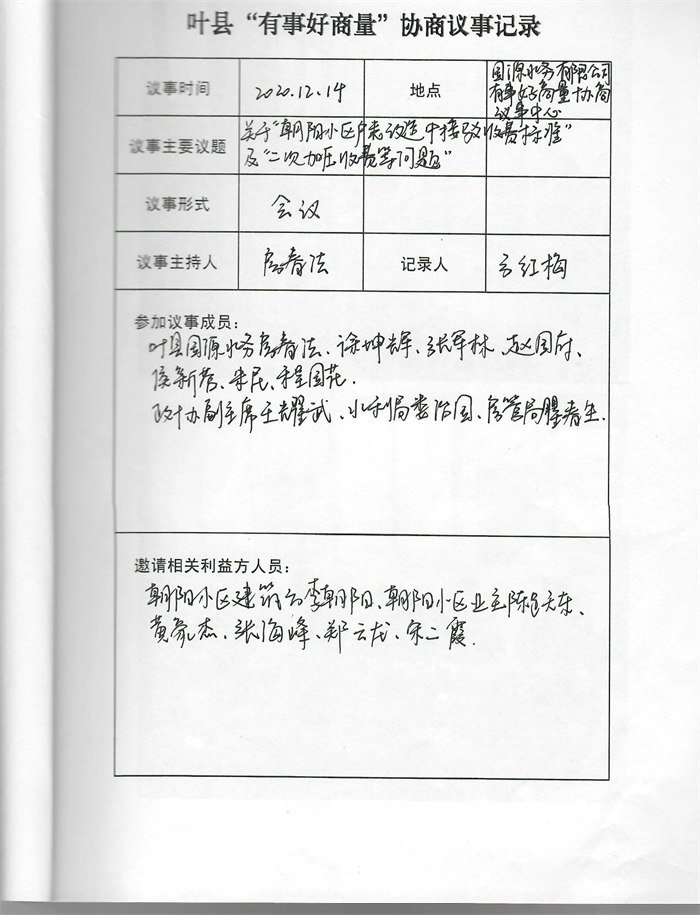 叶县“有事好商量”协商议事记录
议事时间 2020.12.14 地点 国源水务有限公司
有事好商量协商
议事中心
议事主要议题 关于“朝阳小区户表改造中接驳收费标准”
及“二次加压收费等问题”
议事形式 会议
议事主持人 房春法 记录人 方红梅
参加议事成员：
叶县国源水务房春法、徐坤辉、张军林、赵国府、
新营、米民、程国花.
政协副主席王耀武、水利局娄治国、房管局春生.
邀请相关利益方人员：
朝阳小区建筑方李朝阳、朝阳小区业主陈天东、
黄豪杰、张海峰、郑云龙、宋二霞.